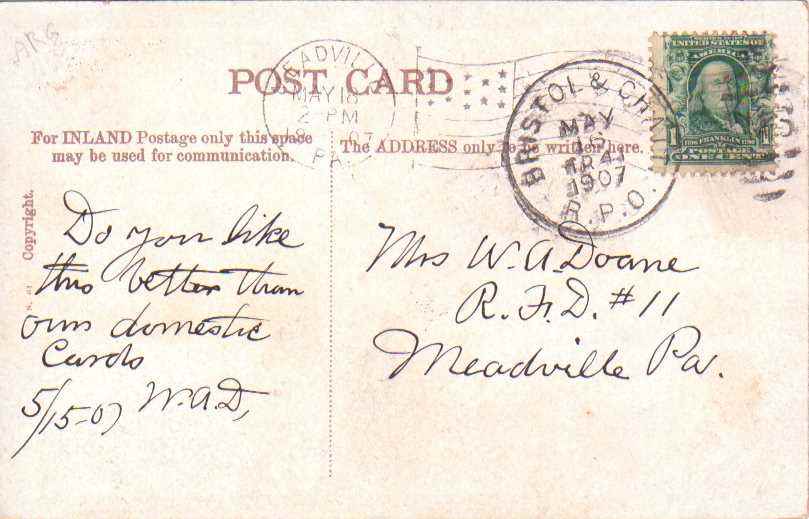 ARG
POST CARD
MEADVILLE
MAY 18
2 PM
07
PA.
BRISTOL & CHAT
MAY
16
TR 41
1907
R.P.O.
UNITED STATES OF
AMERICA
1 FRANKLIN
POSTAGE
ONE CENT
For INLAND Postage only this space
may be used for communication.
The ADDRESS only to be written here.
Copyright.
Do you like
this better than
our domestic
Cards
5/15-07 W.A.D,
Mrs W.A. Doane
R.F.D. #11
Meadville Pa.